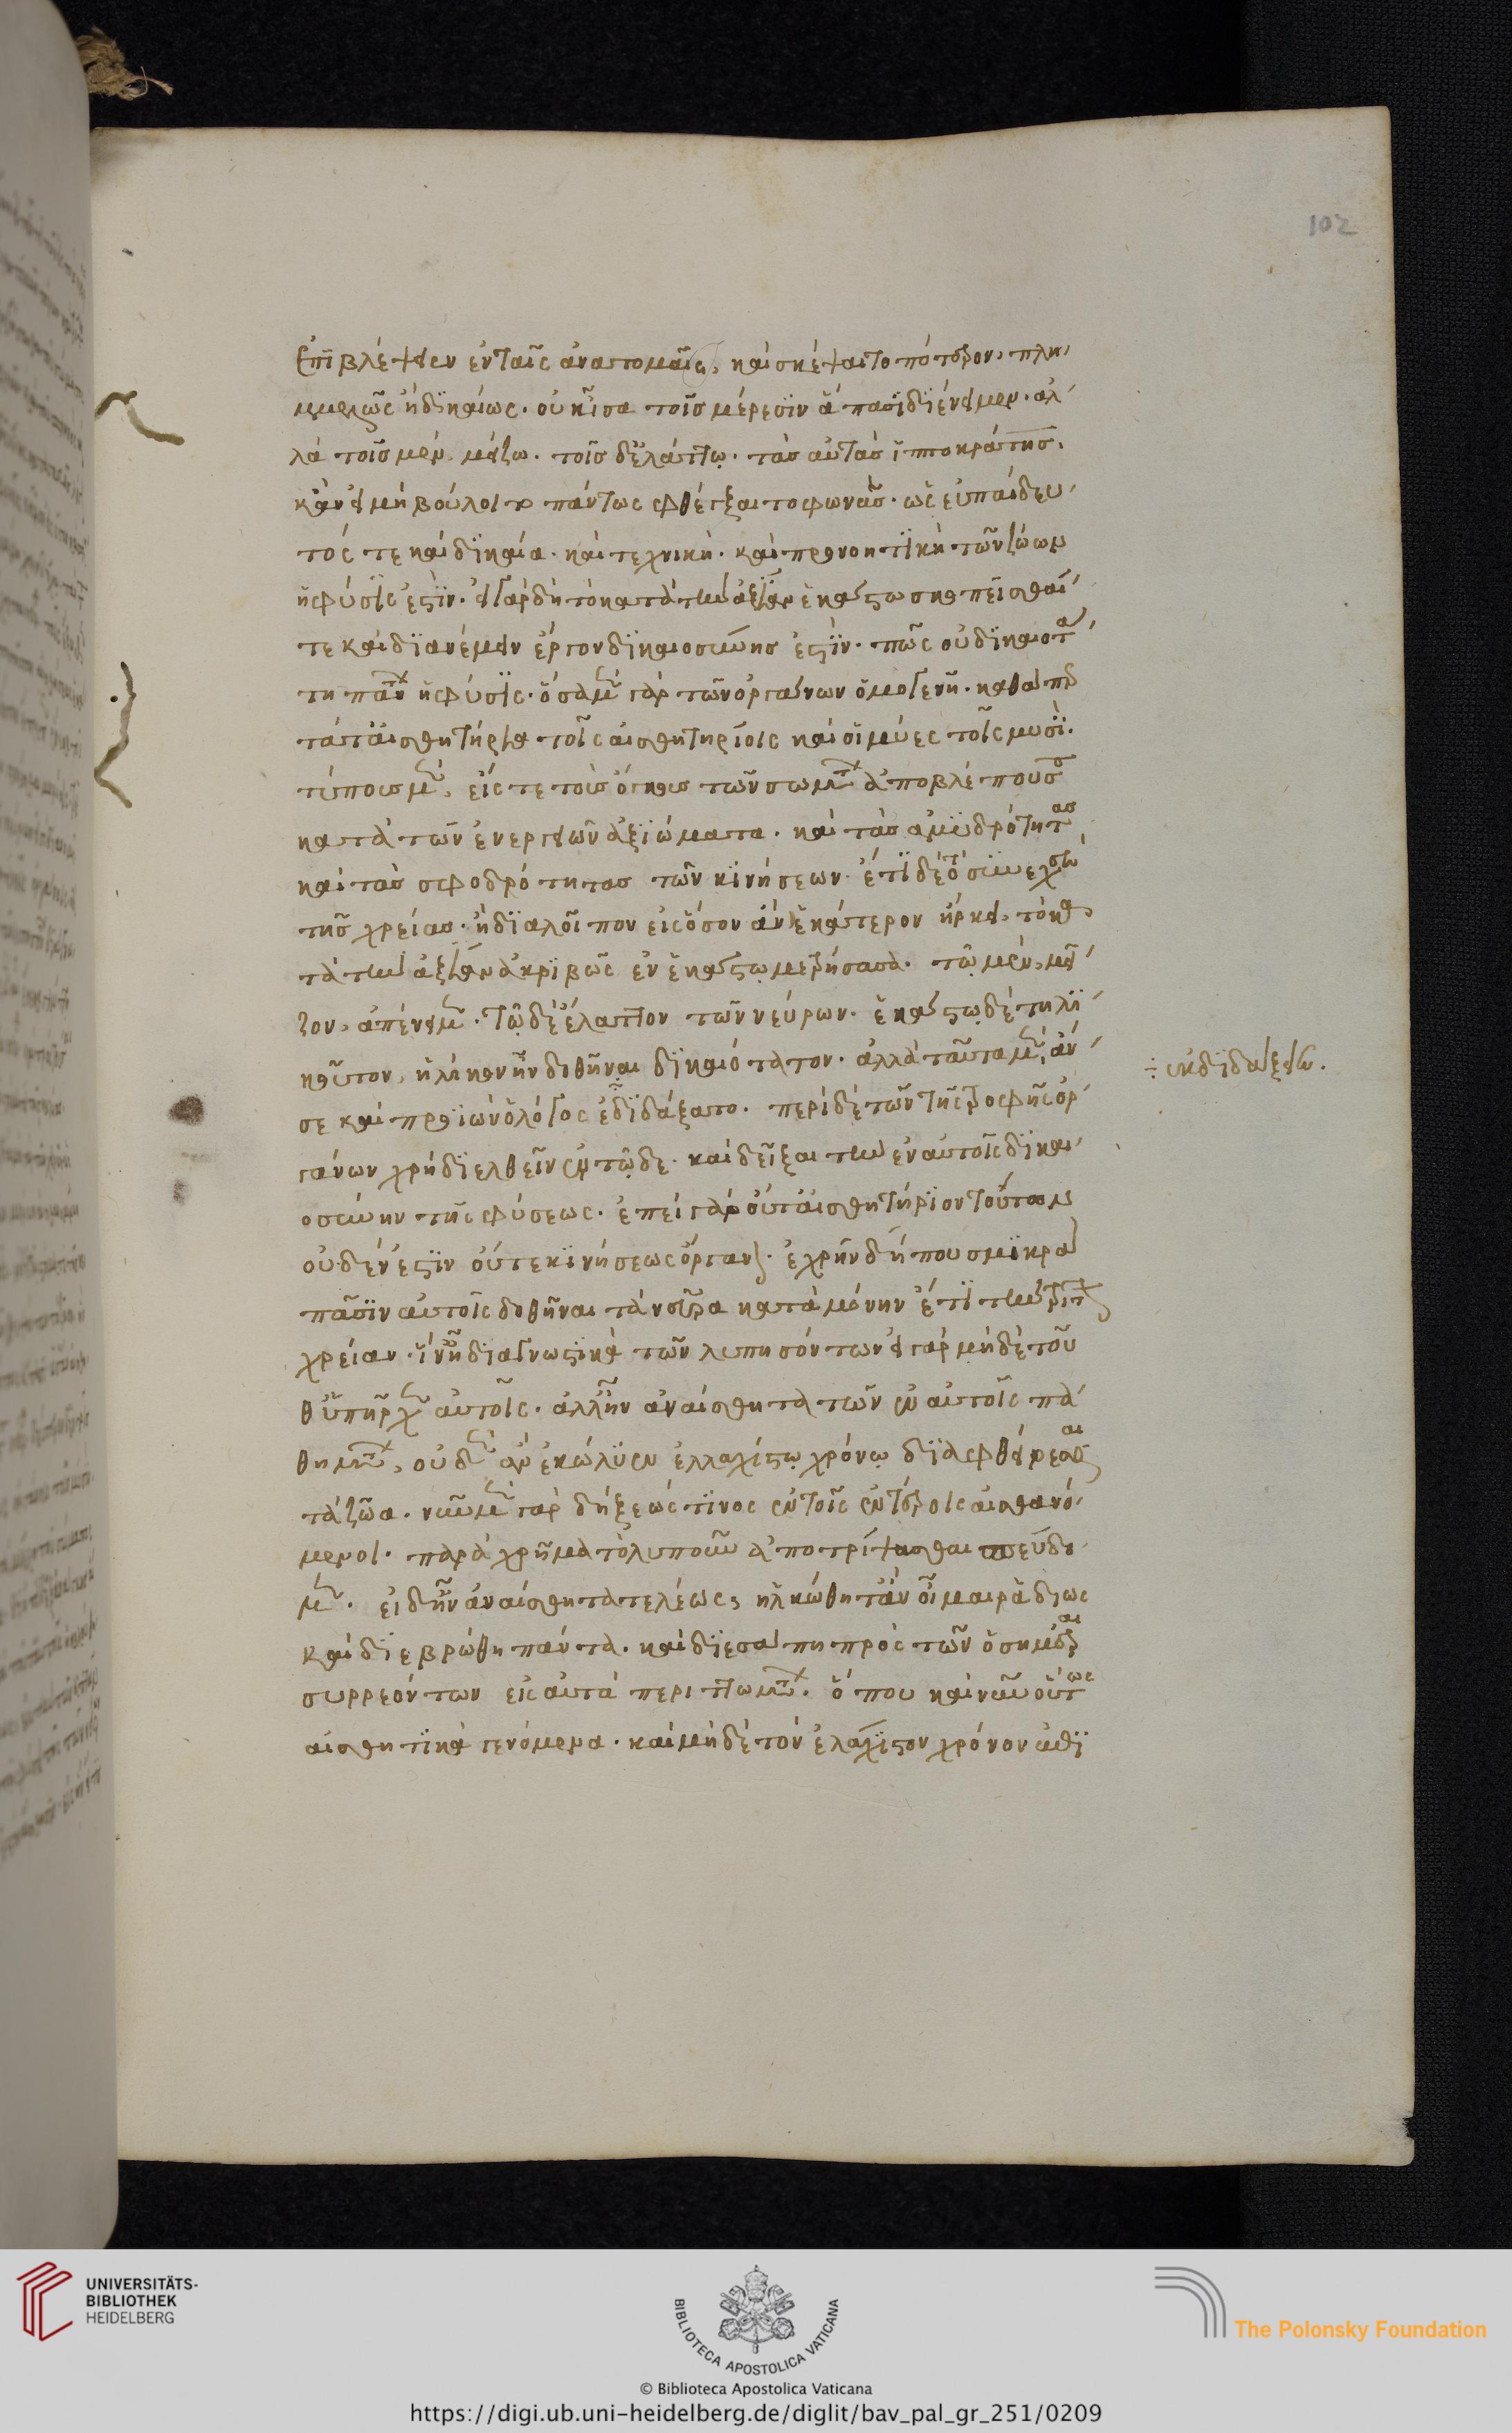 102
ἐπιβλέψειεν ἐν ταῖς ἀνατομαῖς, καὶ σκέψαιτο πότερον πλημ
μελῶς ἢ δικαίως. οὐκ ἴσα τοῖς μέρεσιν ἅπασι διένειμεν. ἀλ
λὰ τοῖς μὲν μείζω. τοῖς δ' ἐλάττω. τὰς αὐτὰς ἱπποκράτης.
κἂν εἰ μὴ βούλοιτο πάντως φθέγξαιτο φωνὰς. ὡς εὐπαίδευ
τός τε καὶ δικαία. καὶ τεχνικὴ. καὶ προνοητικὴ τῶν ζώων
ἡ φύσις ἐστὶν. εἰ γὰρ δὴ τὸ κατὰ τὴν ἀξίαν ἑκάστω σκοπεῖσθαί
τε καὶ διανέμειν ἔργον δικαιοσύνης ἐστὶν. πῶς οὐ δικαιοτά
τη πάντων ἡ φύσις. ὅσα μὲν γὰρ τῶν ὀργάνων ὁμογενῆ. καθάπερ
τά τ' αἰσθητήρια τοῖς αἰσθητηρίοις καὶ οἱ μύες τοῖς μυσί.
τύποις μὲν, εἴς τε τοὺς ὄγκους τῶν σωμάτων ἀποβλέπουσα
κατὰ τῶν ἐνεργειῶν ἀξιώματα. καὶ τὰς ἀμυδρότητας
καὶ τὰς σφοδρότητας τῶν κινήσεων. ἔτι δὲ τὸ συνεχὲς
τῆς χρείας. ἢ διαλεῖπον εἰς ὅσον ἂν ἑκάτερον ἥρκει. τὸ κα
τὰ τὴν ἀξίαν ἀκριβῶς ἐν ἑκάστῳ μετρήσασα. τῷ μὲν μεῖ
ζον ἀπένειμε. τῷ δὲ ἔλαττον τῶν νεύρων. ἑκάστῳ δὲ τηλι
κοῦτον, ἡλίκον ἦν δοθῆναι δικαιότατον. ἀλλὰ ταῦτα μὲν, ἄν
σε καὶ προϊὼν ὁ λόγος ἐδιδάξατο. περὶ δὲ τῶν τῆς τροφῆς ὀρ
÷ ἐκδιδάξειεν.
γάνων χρὴ διελθεῖν ἐν τῷδε. καὶ δεῖξαι τὴν ἐν αὐτοῖς δικαι
οσύνην τῆς φύσεως. ἐπεὶ γὰρ οὔτ' αἰσθητήριον τούτων
οὐδέν ἐστιν οὔτε κινήσεως ὄργανον. ἐχρῆν δή που σμικρὰ
πᾶσιν αὐτοῖς δοθῆναι τὰ νεῦρα κατὰ μόνην ἔτι τὴν τρίτην
χρείαν. ἵν' ᾖ διαγνωστικὰ τῶν λυπησόντων εἰ γὰρ μηδὲ τοῦ
θ' ὑπῆρχεν αὐτοῖς. ἀλλ' ἦν ἀναίσθητα τῶν ἐν αὐτοῖς πα
θημάτων, οὐδὲν ἂν ἐκώλυεν ἐλλαχίστῳ χρόνῳ διαφθείρεσθαι
τὰ ζῶα. νῦν μὲν γὰρ δήξεώς τινος ἐν τοῖς ἐντέροις αἰσθανό
μενοι. παραχρῆμα τὸ λυποῦν ἀποτρίψασθαι σπεύδο
μεν. εἰ δ' ἦν ἀναίσθητα τελέως, ἡλκώθη τ' ἂν οἶμαι ῥᾳδίως
καὶ διεβρώθη πάντα. καὶ διεσάπη πρὸς τῶν ὁσημέραι
συρρεόντων εἰς αὐτὰ περιττωμάτων. ὅπου καὶ νῦν οὕτως
αἰσθητικὰ γενόμενα. καὶ μηδὲ τὸν ἐλάχιστον χρόνον ἀθι
UNIVERSITÄTS-
BIBLIOTHEK
HEIDELBERG
BIBLIOTECA APOSTOLICA VATICANA
The Polonsky Foundation
© Biblioteca Apostolica Vaticana
https://digi.ub.uni-heidelberg.de/diglit/bav_pal_gr_251/0209